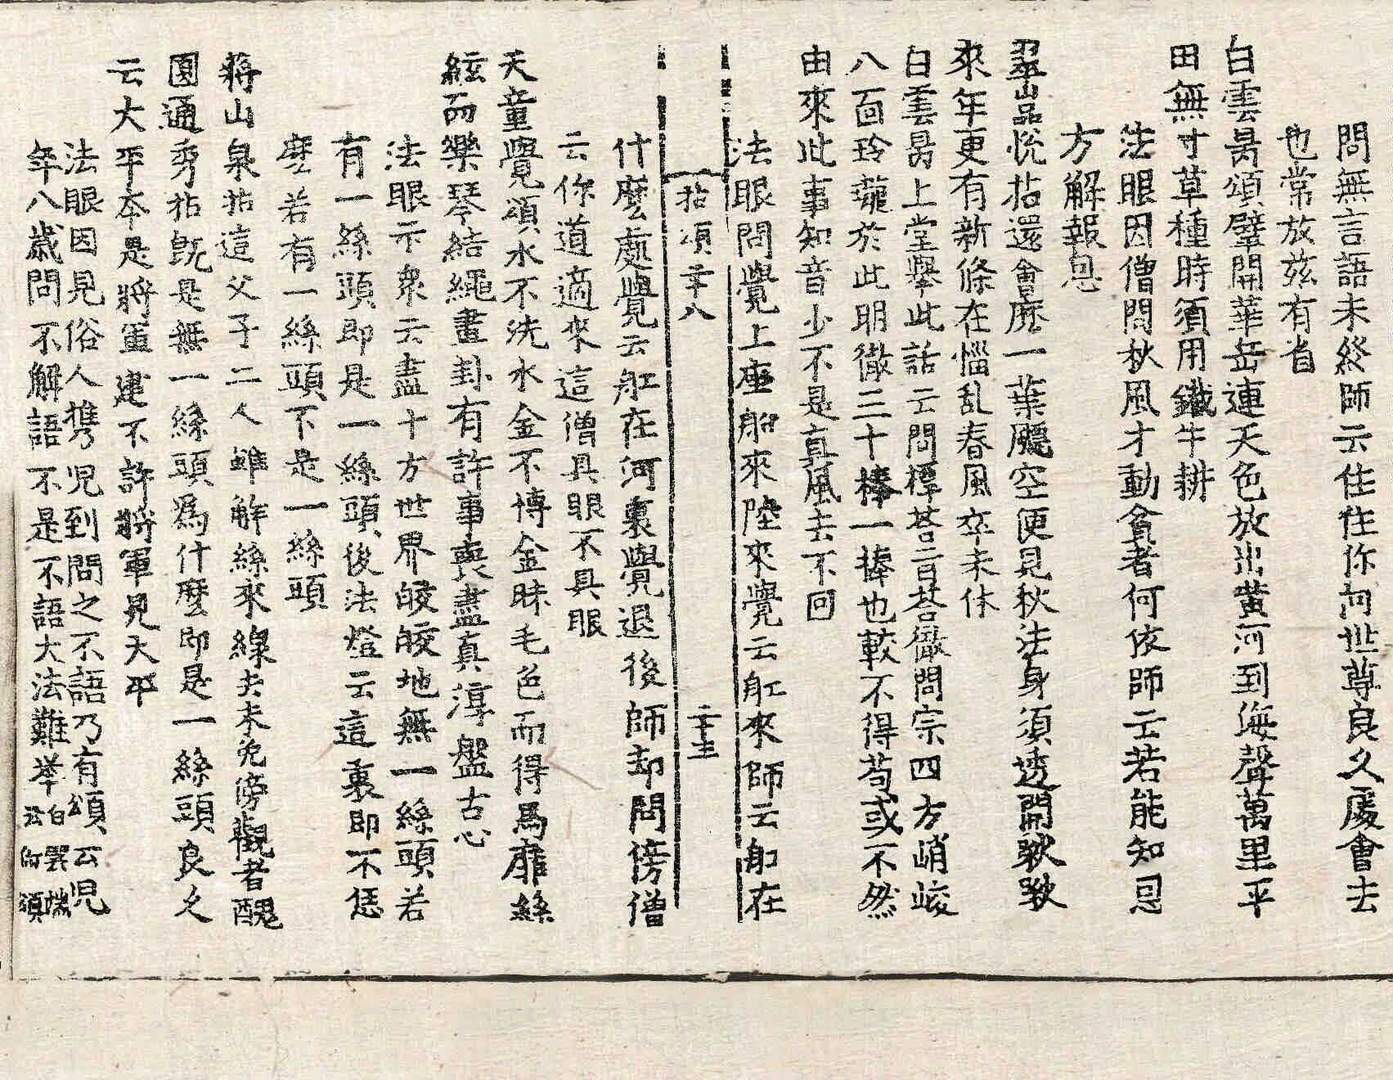 問無言語未終師云住住你問世尊良久處會去
也常放玆有省
白雲昺頌擘開華岳連天色放出黃河到海聲萬里平
田無寸草種時須用鐵牛耕
法眼因僧問秋風才動貧者何依師云若能知恩
方解報恩
翠品悅拈還會麽一葉飄空便見秋法身須透閙啾啾
來年更有新條在惱乱春風卒未休
白雲昺上堂擧此話云問標荅旨荅徹問宗四方峭峻
八面玲瓏於此明徹三十棒一棒也較不得苟或不然
由來此事知音少不是真風去不回
法眼問覺上座船來陸來覺云舡來師云舡在
拈頌二十八
二十三
什麽處覺云舡在河裏覺退後師却問傍僧
云你道適來這僧具眼不具眼
天童覺頌水不洗水金不博金昧毛色而得馬靡絲
絃而樂琴結繩畫卦有許事喪盡真淳盤古心
法眼示衆云盡十方世界皎皎地無一絲頭若
有一絲頭即是一絲頭後法燈云這裏即不恁
麽若有一絲頭不是一絲頭
蔣山泉拈這父子二人雖解絲來線去未免傍觀者醜
圓通秀拈旣是無一絲頭爲什麽即是一絲頭良久
云大平夲是將軍建不許將軍見大平
法眼因見俗人携児到問之不語乃有頌云児
年八歲問不解語不是不語大法難举白雲端
云何頌